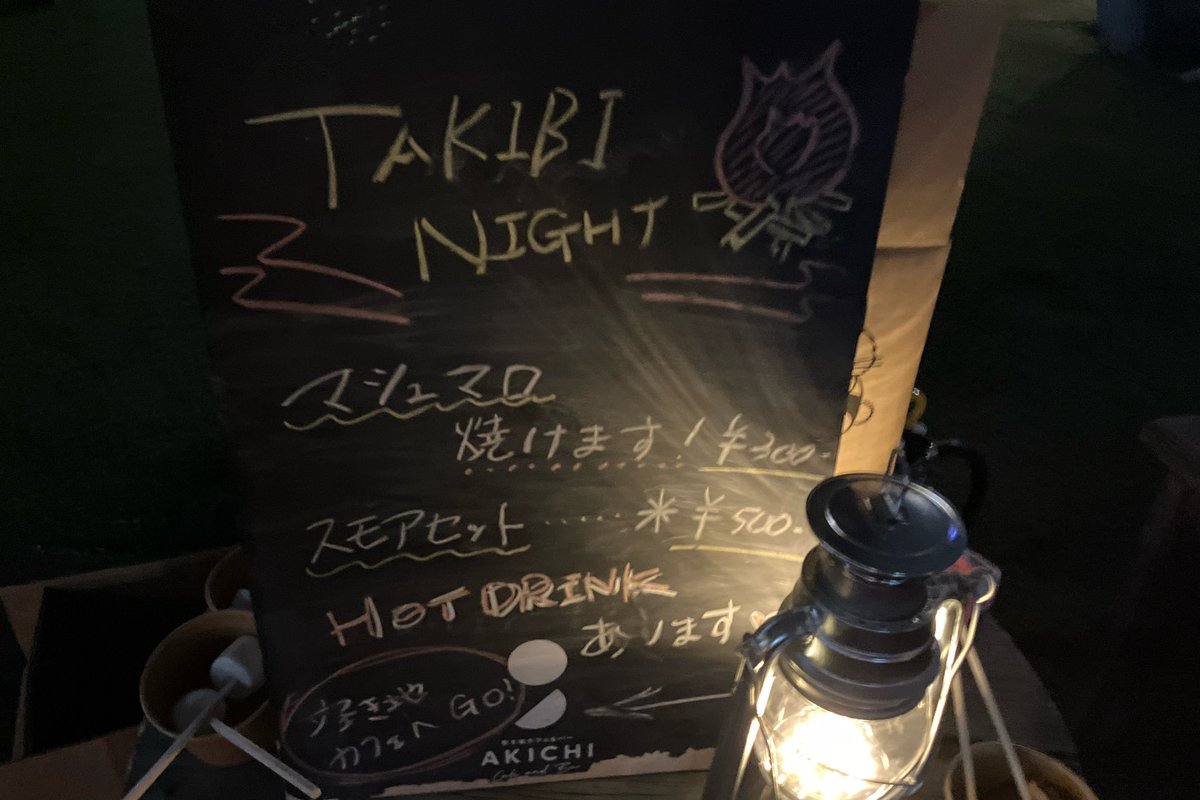 TAKIBI
NIGHT
マシュマロ
焼けます! ¥300-
スモアセット ・・・・・ * ¥500-
HOT DRINK
あります
空き地
カフェへ GO!
AKICHI
Cafe and Bar